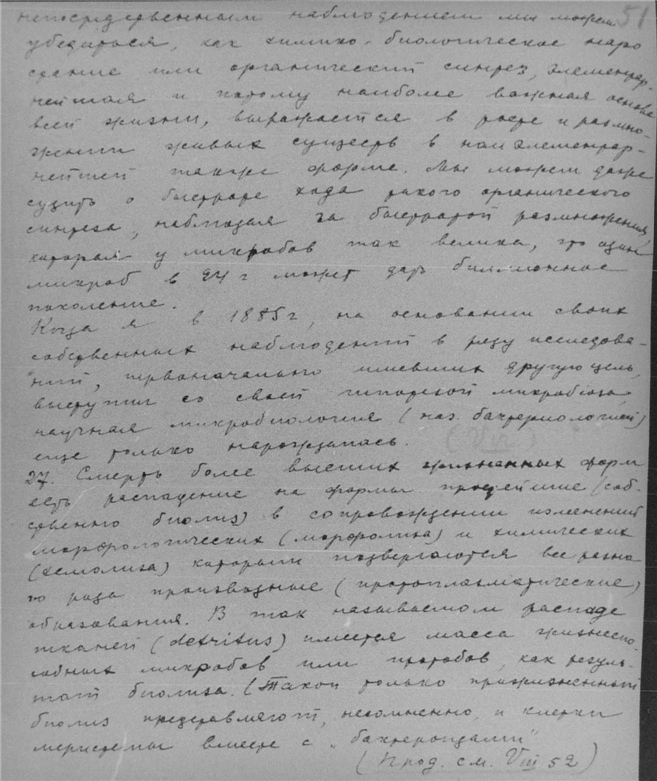 непосредственным наблюдением мы можем 51
убедиться, как химико-биологическое наро
ждение или органический синтез, элементар-
нейшая и потому наиболее важная основа
всей жизни, выражается в росте и размно-
жении живых существ в наиэлементар-
нейшей также форме. Мы можем даже
судить о быстроте хода такого органического
синтеза, наблюдая за быстротой размножения,
которая у микробов так велика, что один
микроб в 24 г может дать биллионное
поколение.
Когда я в 1885 г, на основании своих
собственных наблюдений в ряду исследова-
ний, первоначально имевших другую цель,
выступил со своей гипотезой микробиоза,
научная микробиология (наз. бактериологией)
еще только нарождалась. (VIII)
27. Смерть более высших жизненных форм
есть распадение на формы простейшие (соб-
ственно биолиз) в сопровождении изменений
морфологических (морфолиза) и химических
(хемолиза) которым подвергаются все разно
го рода производные (протоплазматические)
образования. В так называемом распаде
тканей (detritus) имеется масса жизнеспо-
собных микробов или протобов, как резуль-
тат биолиза. (Такой только прижизненный
биолиз представляют, несомненно, и клетки
меристемы вместе с „бактероидами"
(Прод. см. VIII 52)